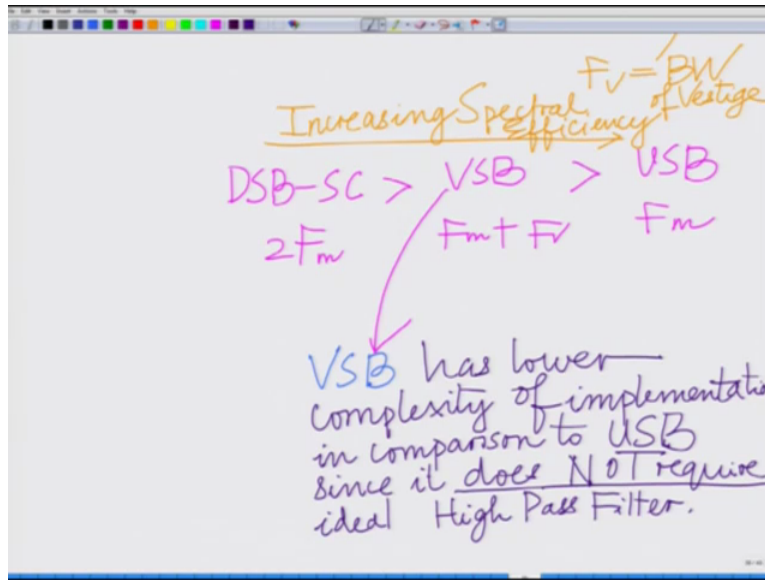 Fv = BW
of Vestige
Increasing Spectral
Efficiency
DSB-SC > VSB > USB
2Fm Fm+Fv Fm
VSB has lower
complexity of implementatio
in comparison to USB
since it does NOT require
ideal High Pass Filter.